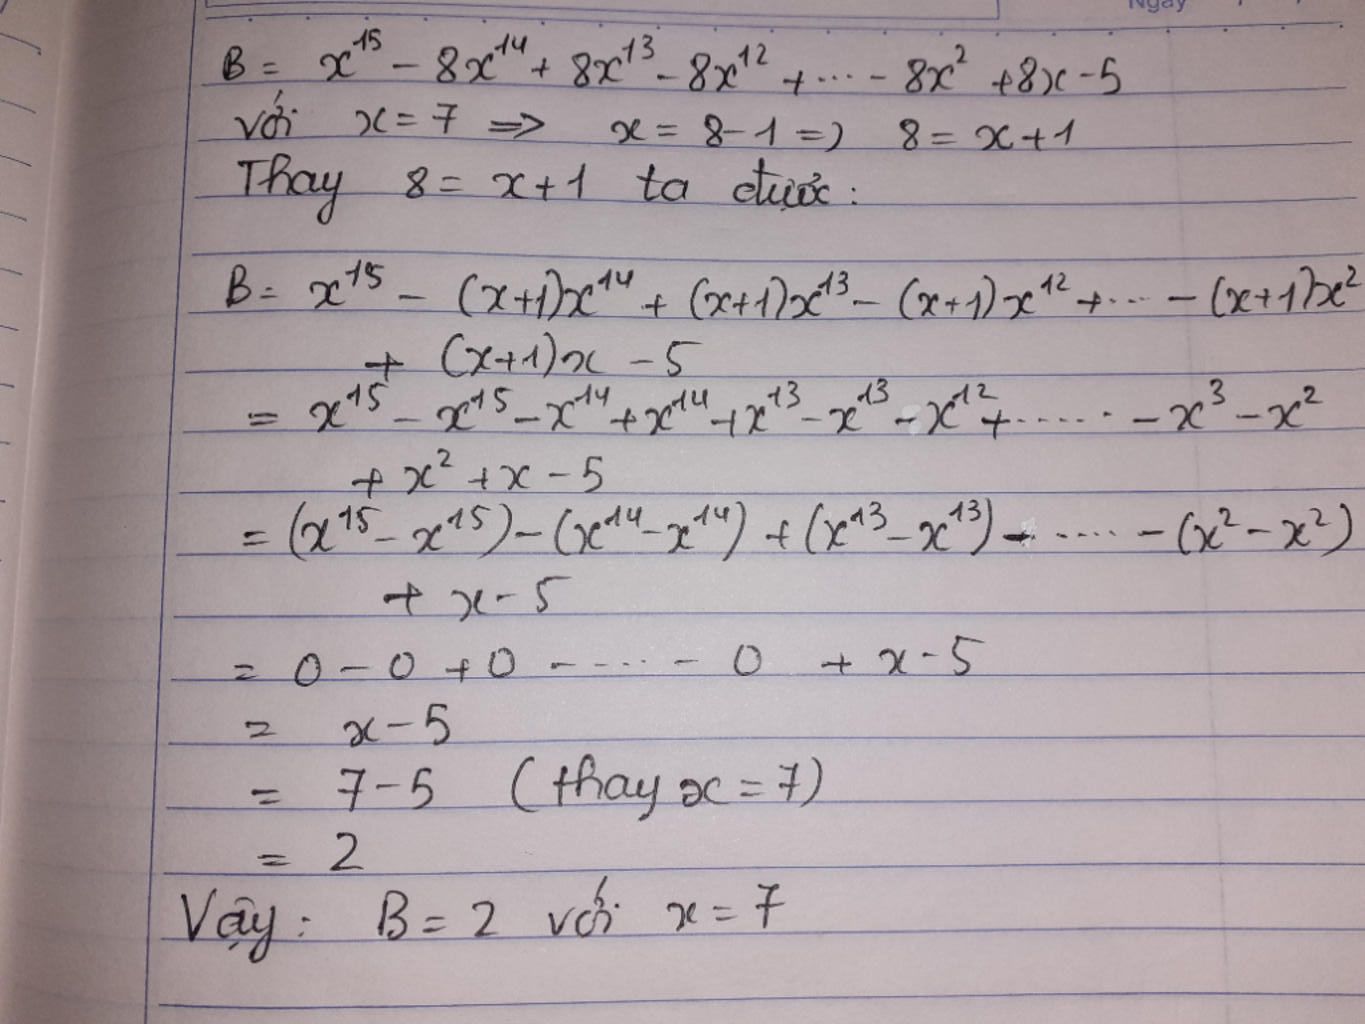 Ngày
B = x¹⁵ - 8x¹⁴ + 8x¹³ - 8x¹² + ... - 8x² + 8x - 5
với x = 7 => x = 8 - 1 => 8 = x + 1
Thay 8 = x + 1 ta được :
B = x¹⁵ - (x+1)x¹⁴ + (x+1)x¹³ - (x+1)x¹² + ... - (x+1)x²
+ (x+1)x - 5
= x¹⁵ - x¹⁵ - x¹⁴ + x¹⁴ + x¹³ - x¹³ - x¹² + ...... - x³ - x²
+ x² + x - 5
= (x¹⁵ - x¹⁵) - (x¹⁴ - x¹⁴) + (x¹³ - x¹³) - ..... - (x² - x²)
+ x - 5
= 0 - 0 + 0 - .... - 0 + x - 5
= x - 5
= 7 - 5 (thay x = 7)
= 2
Vậy : B = 2 với x = 7